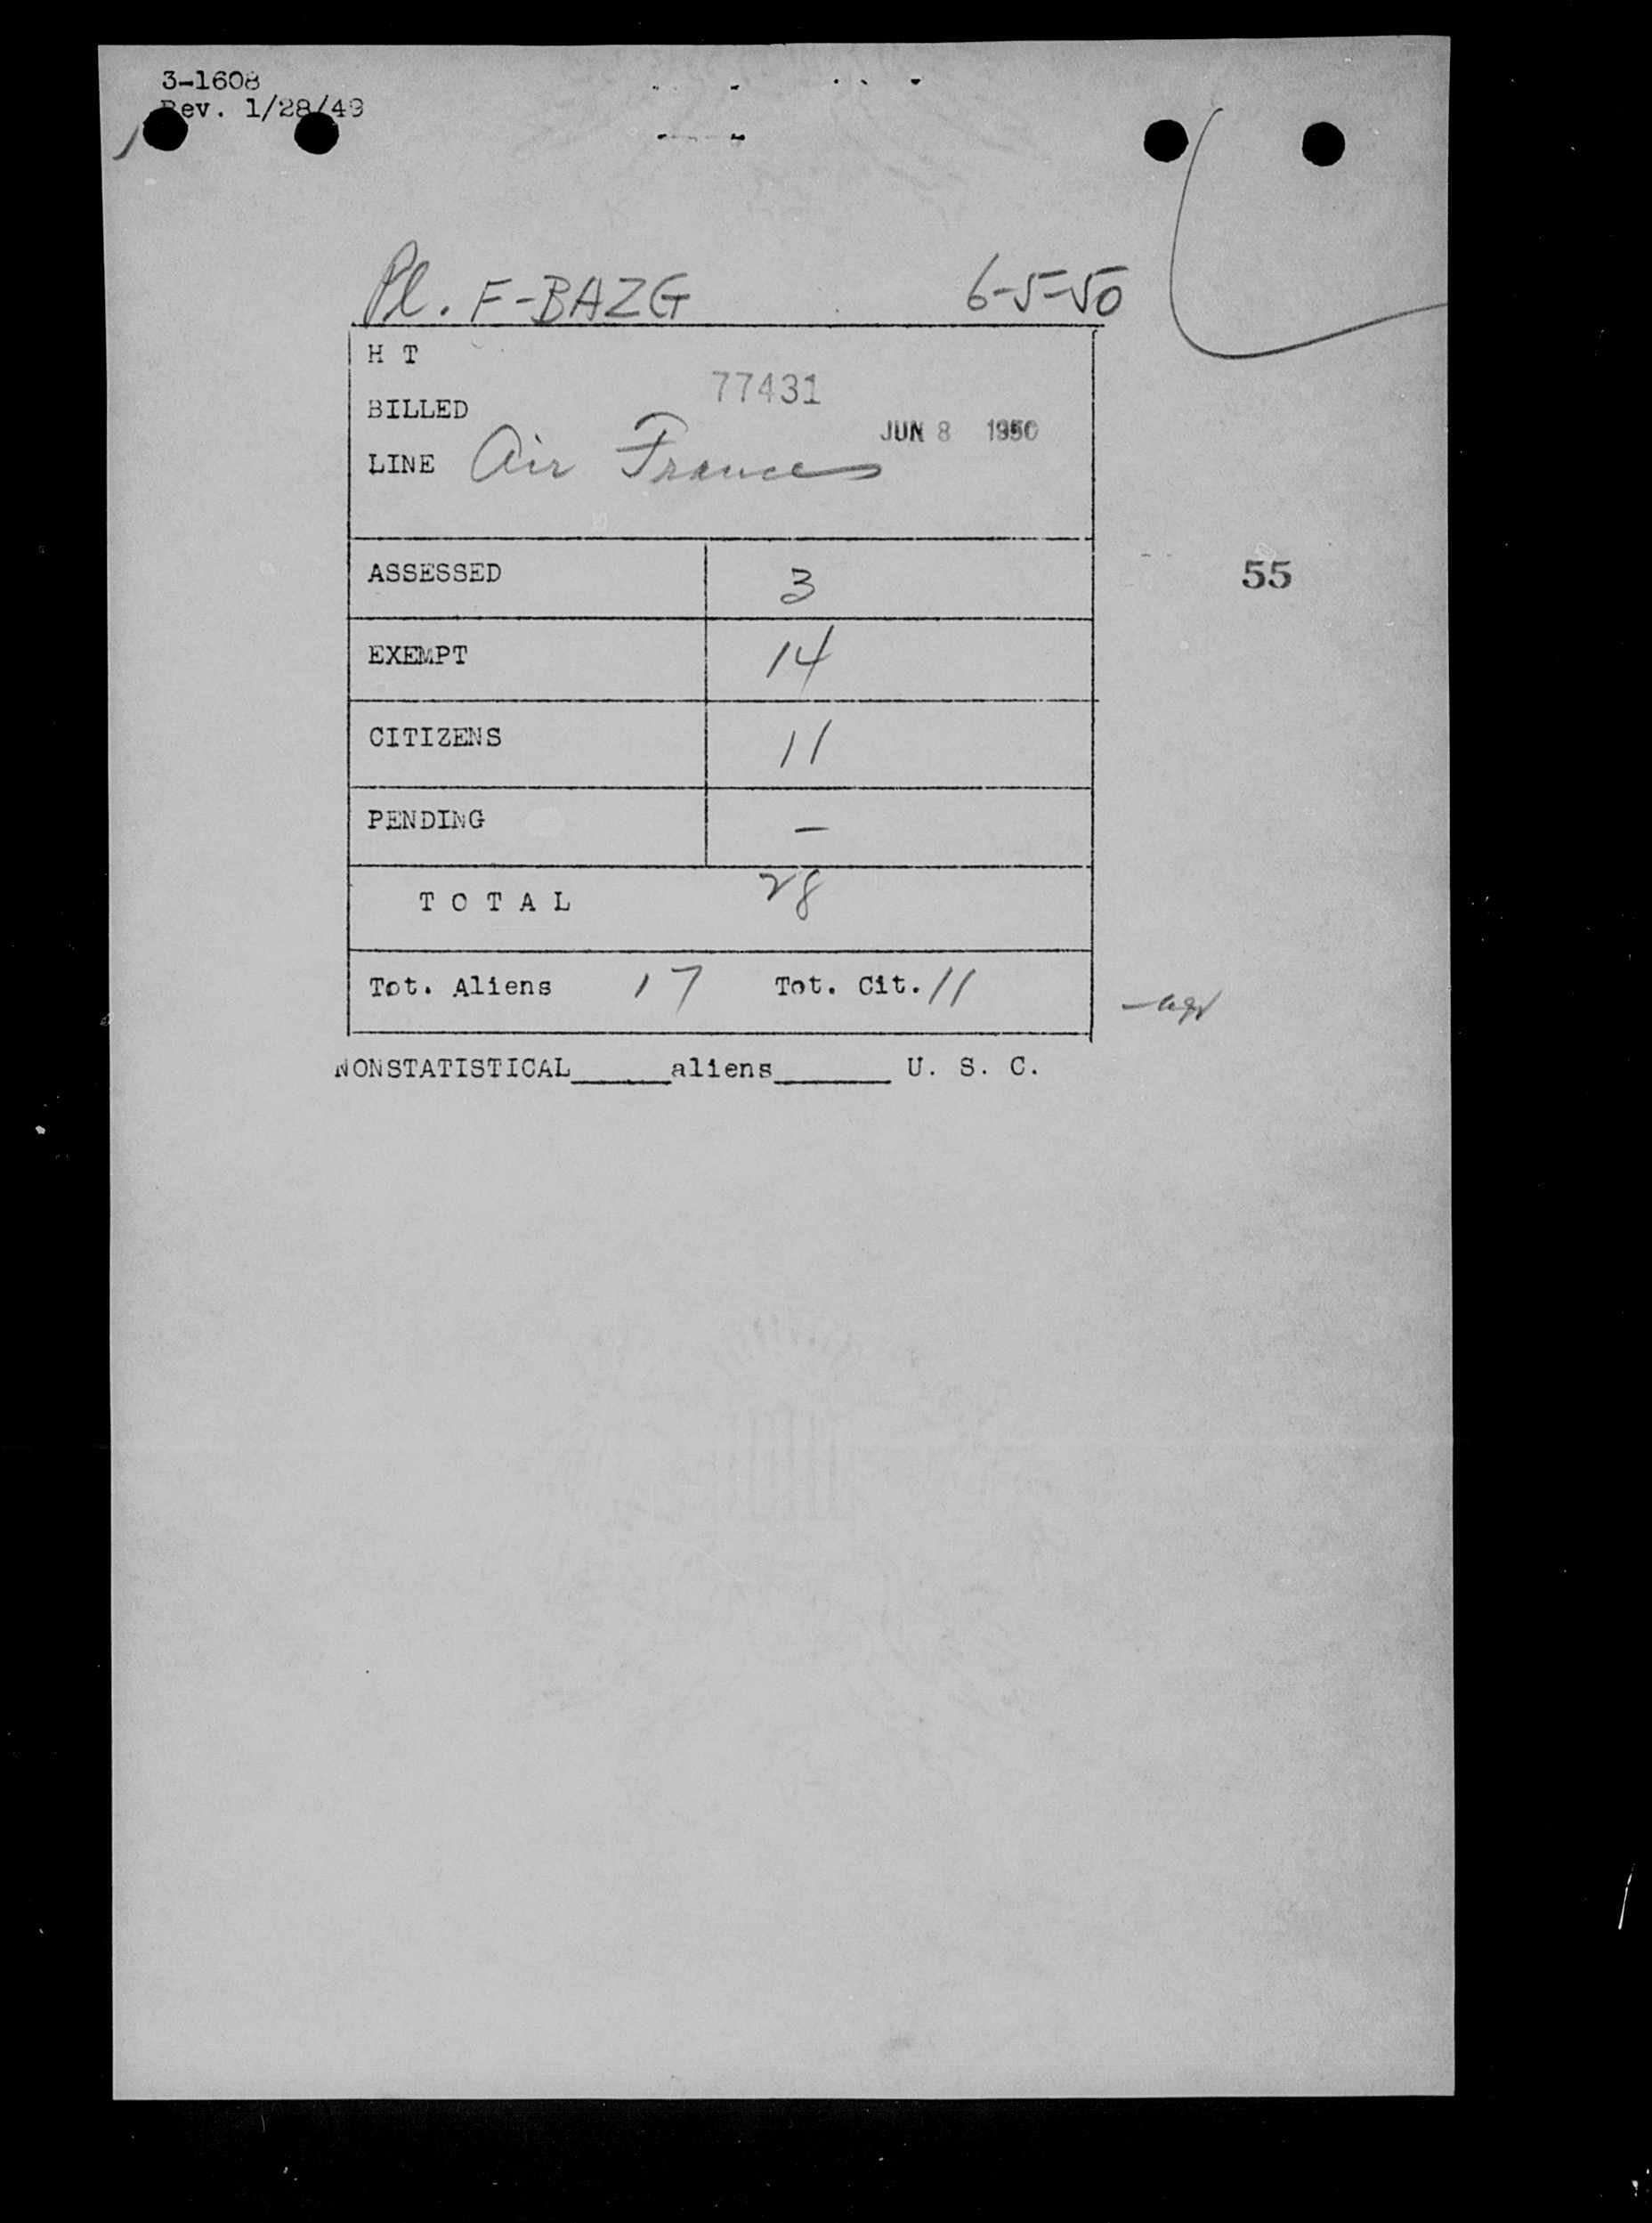 3-1608
Rev. 1/28/49
Pl. F-BAZG 6-5-50
H T
77431
BILLED
JUN 8 1950
LINE Air France
ASSESSED 3
55
EXEMPT 14
CITIZENS 11
PENDING —
T O T A L 28
Tot. Aliens 17 Tot. Cit. 11
NONSTATISTICAL_____aliens______ U. S. C.